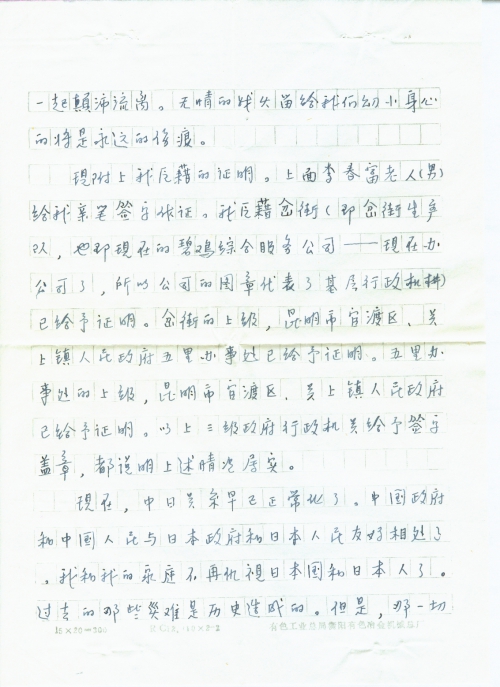 一起颠沛流离。无情的战火留给我们幼小身心
的将是永远的伤痕。
现附上我原籍的证明。上面李春富老人(男)
给我亲笔签字作证。我原籍岔街(即岔街生产
队,也即現在的碧鸡综合服务公司——現在办
公司了,所以公司的图章代表了基层行政机构)
已给予证明。岔街的上级,昆明市官渡区、关
上镇人民政府五里办事处已给予证明。五里办
事处的上级,昆明市官渡区、关上镇人民政府
已给予证明。以上三级政府行政机关给予签字
盖章,都说明上述情况属实。
現在,中日关系早已正常化了。中国政府
和中国人民与日本政府和日本人民友好相处了
。我和我的家庭不再仇視日本国和日本人了。
过去的那些災难是历史造成的。但是,那一切
15×20=300